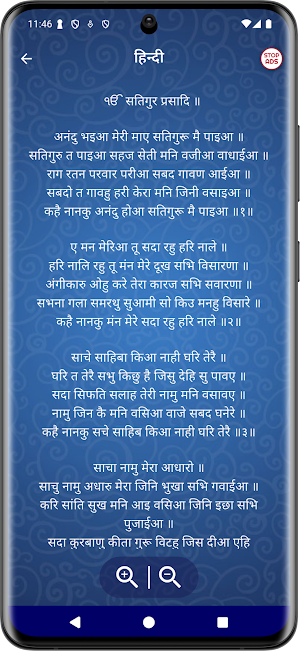 11:46
हिन्दी
STOP ADS
ੴ सतिगुर प्रसादि ॥
अनंदु भइआ मेरी माए सतिगुरू मै पाइआ ॥
सतिगुरु त पाइआ सहज सेती मनि वजीआ वाधाईआ ॥
राग रतन परवार परीआ सबद गावण आईआ ॥
सबदो त गावहु हरी केरा मनि जिनी वसाइआ ॥
कहै नानकु अनंदु होआ सतिगुरू मै पाइआ ॥१॥
ए मन मेरिआ तू सदा रहु हरि नाले ॥
हरि नालि रहु तू मंन मेरे दूख सभि विसारणा ॥
अंगीकारु ओहु करे तेरा कारज सभि सवारणा ॥
सभना गला समरथु सुआमी सो किउ मनहु विसारे ॥
कहै नानकु मंन मेरे सदा रहु हरि नाले ॥२॥
साचे साहिबा किआ नाही घरि तेरै ॥
घरि त तेरै सभु किछु है जिसु देहि सु पावए ॥
सदा सिफति सलाह तेरी नामु मनि वसावए ॥
नामु जिन कै मनि वसिआ वाजे सबद घनेरे ॥
कहै नानकु सचे साहिब किआ नाही घरि तेरै ॥३॥
साचा नामु मेरा आधारो ॥
साचु नामु अधारु मेरा जिनि भुखा सभि गवाईआ ॥
करि सांति सुख मनि आइ वसिआ जिनि इछा सभि
पुजाईआ ॥
सदा कुरबाणु कीता गुरू विटहु जिस दीआ एहि